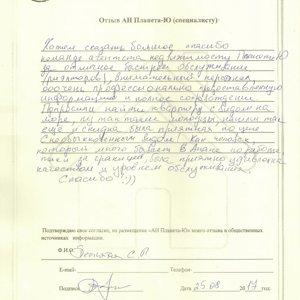 Отзыв АН Планета-Ю (специалисту):
Хотел сказать большое спасибо
команде агентства недвижимости Планета-Ю
за отличное быстрое обслуживание
внимательный персонал,
очень профессионально предоставленную
информацию и полное сопровождение.
Попросили найти квартиру с видом на
море, ну так такие молодцы, нашли так
еще и скидка была приятная по цене
С необыкновенным видом! Как человек,
который много бывает в Анапе по работе
за границей, была приятно удивлена
качеством и уровнем обслуживания.
Спасибо :))
Подтверждаю свое согласие, на размещение «АН Планета-Ю» моего отзыва в общественных
источниках информации.
Ф.И.О. С.П.
E-mail: Телефон:
Подпись Дата 25 08 2017 год.